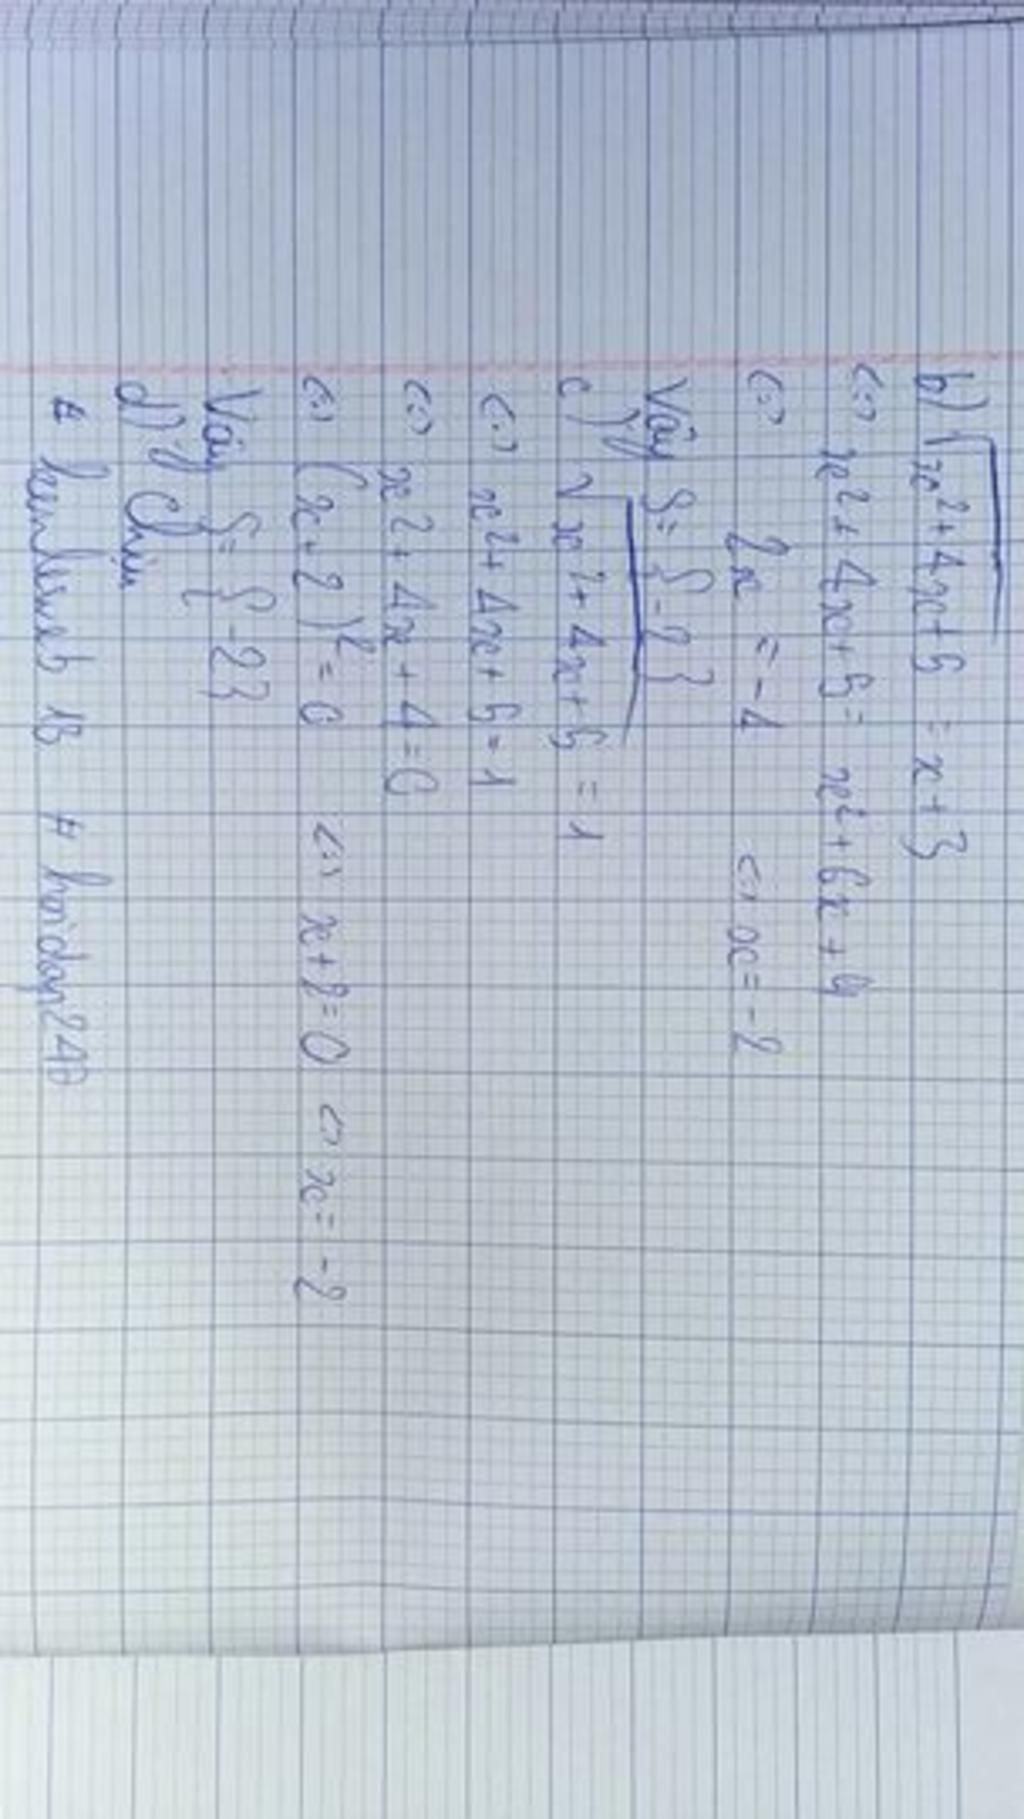 b) √x²+4x+5 = x+3
<=> x²+4x+5 = x²+6x+9
<=> 2x = -4 <=> x = -2
Vậy S = { -2 }
c) √x²+4x+5 = 1
<=> x²+4x+5 = 1
<=> x²+4x+4 = 0
<=> (x+2)² = 0 <=> x+2 = 0 <=> x = -2
Vậy S = { -2}
d) Chịu
# hoidap247